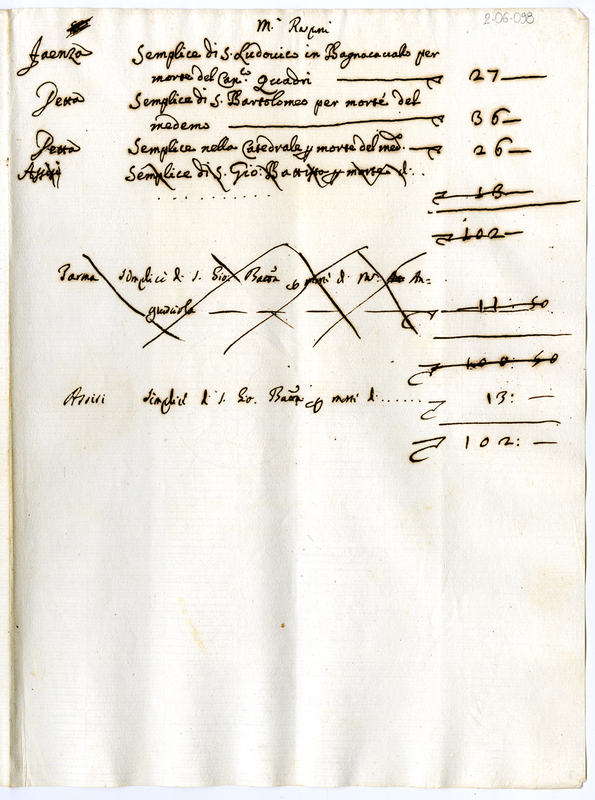 2-06-098
M.r Rasini
Faenza Semplice di S. Ludovico in Bagnacavallo per
morte del Can.co Quadri 27
Detta Semplice di S. Bartolomeo per morte del
medemo 36
Detta Semplice nella Catedrale p morte del med.o 26
Assisi Semplice di S. Gio: Battista p morte d: . .
13
102
Parma simplici di S. Gio. Batta p morte di An=
guisciola 11: 50
100: 50
Assisi simplici di S. Gio. Batta p morte di . . . . . . 13: —
102: —